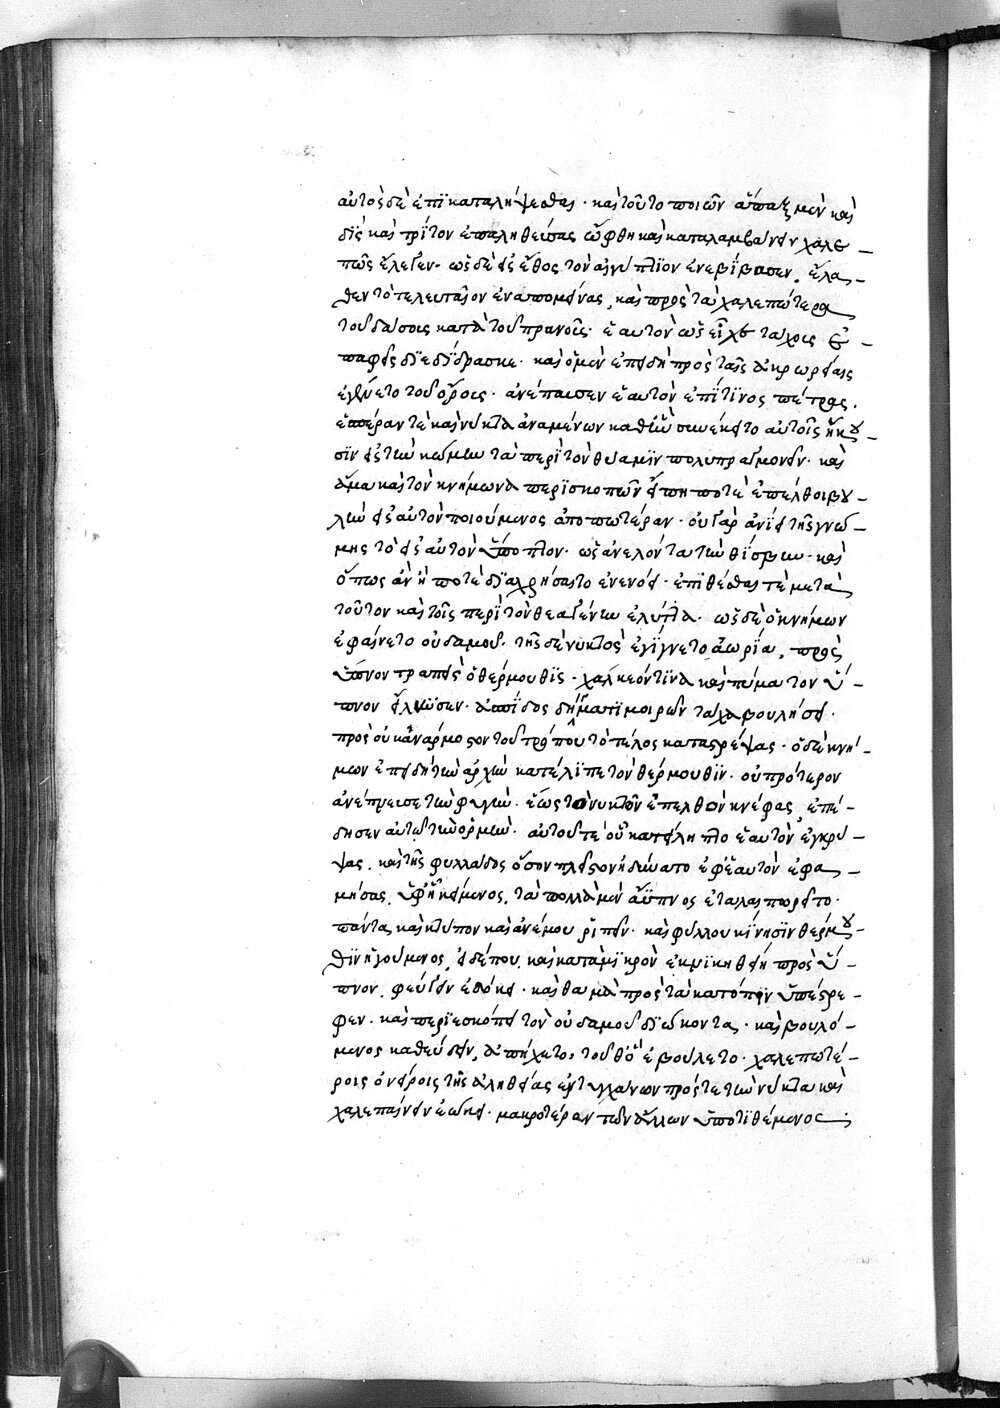 αὐτὸς δὲ ἐπϊκαταλήψεσθαι · καὶ τοῦτο ποιῶν ἅπαξ μὲν καὶ
δὶς καὶ τρίτον ἐπαληθεύσας ὤφθη καὶ καταλαμβάνειν χαλε-
πῶς ἔλεγεν · ὡς δὲ εἰς ἔθος τὸν αἰγύπτϊον ἐνεβίβασεν, ἔλα-
θεν τὸ τελευταῖον ἐναπομείνας, καὶ πρὸς τὰ χαλεπώτερα
τοῦ δάσους κατὰ τοῦ πρανοῦς · ἑαυτὸν ὡς εἶχε τάχους ἐ-
παφεὶς δϊεδίδρασκε · καὶ ὁ μὲν ἐπειδὴ πρὸς ταῖς ἀκρωρείαις
ἐγένετο τοῦ ὄρους · ἀνέπαυσεν ἑαυτὸν ἐπί τϊνος πέτρας ·
ἑσπέραν τὲ καὶ νύκτα ἀναμένων καθ' ἣν συνέκειτο αὐτοῖς ἥκου-
σϊν εἰς τὴν κώμην τὰ περὶ τὸν θύαμϊν πολυπραγμονεῖν · καὶ
ἅμα καὶ τὸν κνήμωνα περϊσκοπῶν εἴπη ποτὲ ἐπέλθοι βου-
λὴν εἰς αὐτὸν ποιούμενος ἀποπωτέραν · οὐ γὰρ ἀνίει τῆς γνώ-
μης τὸ εἰς αὐτὸν ὕποπτον · ὡς ἀνελόντα τὴν θίσβην · καὶ
ὅπως ἄν ἥ ποτὲ δϊαχρήσαιτο ἐνενόει · ἐπϊθέσθαι τὲ μετὰ
τοῦτον καὶ τοῖς περὶ τὸν θεαγένην ἐλύττα · ὡς δὲ ὁ κνήμων
ἐφαίνετο οὐδαμοῦ · τῆς δὲ νυκτὸς ἐγίγνετο ἀωρία, πρὸς
ὕπνον τραπεὶς ὁ θέρμουθϊς · χάλκεόν τϊνα καὶ πύματον ὕ-
πνον εἵλκυσεν · ἀσπίδος δήγματϊ μοιρῶν τάχα βουλήσει ·
πρὸς οὐκ ἀνάρμοστον τοῦ τρόπου τὸ τέλος καταστρέψας · ὁ δὲ κνή-
μων ἐπειδὴ τὴν ἀρχὴν κατέλϊπε τὸν θέρμουθϊν · οὐ πρότερον
ἀνέπνευσε τὴν φυγὴν · ἕως τὸ νυκτὸν ἐπελθὸν κνέφας, ἐπέ-
δησεν αὐτῶ τὴν ὁρμὴν · αὐτοῦ τε οὗ κατείληπτο ἑαυτὸν ἐγκρύ-
ψας, καὶ τῆς φυλλάδος ὅσον πλεῖστον ἠδύνατο ἐφ' ἑαυτὸν ἐφα-
μήσας, ὑφ' ἧ κείμενος, τὰ πολλὰ μὲν ἄϋπνος ἐταλαιπωρεῖτο ·
πάντα καὶ κτύπον καὶ ἀνέμου ῥιπὴν · καὶ φύλλου κίνησϊν θέρμου-
θϊν ἡγούμενος, εἰ δέ που, καὶ κατὰ μϊκρὸν ἐκνϊκηθείη πρὸς ὕ-
πνον, φεύγειν ἐδόκει · καὶ θαμὰ πρὸς τὰ κατόπϊν ὑπέστρε-
φεν · καὶ περϊεσκόπει τὸν οὐδαμοῦ δϊώκοντα · καὶ βουλό-
μενος καθεύδειν, ἀπηύχετο, τοῦθ' ὃ ἐβούλετο · χαλεπωτέ-
ροις ὀνείροις τῆς ἀληθείας ἐντυγχάνων πρός τε τὴν νύκτα καὶ
χαλεπαίνειν ἐώκει · μακροτέραν τῶν ἄλλων ὑποτϊθέμενος ·